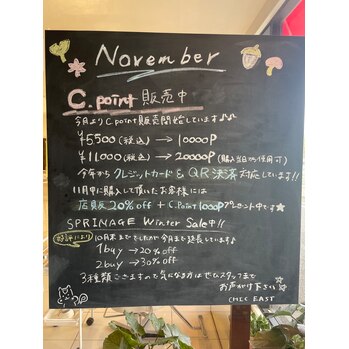 November
C.point 販売中
今月よりC.point販売開始しています♪
¥5500(税込) → 10000P
¥11,000(税込) → 20000P (購入当日から使用可)
今年からクレジットカード & QR決済対応しています!!
11月中に購入して頂いたお客様には
店販20%off + C.Point 1000Pプレゼント中です☆
SPRINAGE Winter Sale中!!
好評により 10月末まででしたが今月まで延長しています♪
1buy → 20%off
2buy → 30%off
3種類ございますので気になる方はぜひスタッフまで
お声がけ下さい☆
CHIC EAST